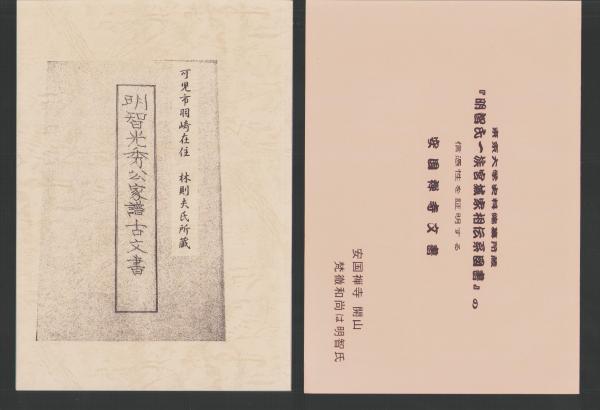 可児市羽崎在住 林則夫氏所蔵
明智光秀公家譜古文書
東京大学史料編纂所蔵
『明智氏一族宮城家相伝系図書』の
信憑性を証明する
安国禅寺文書
安国禅寺 開山
梵徹和尚は明智氏